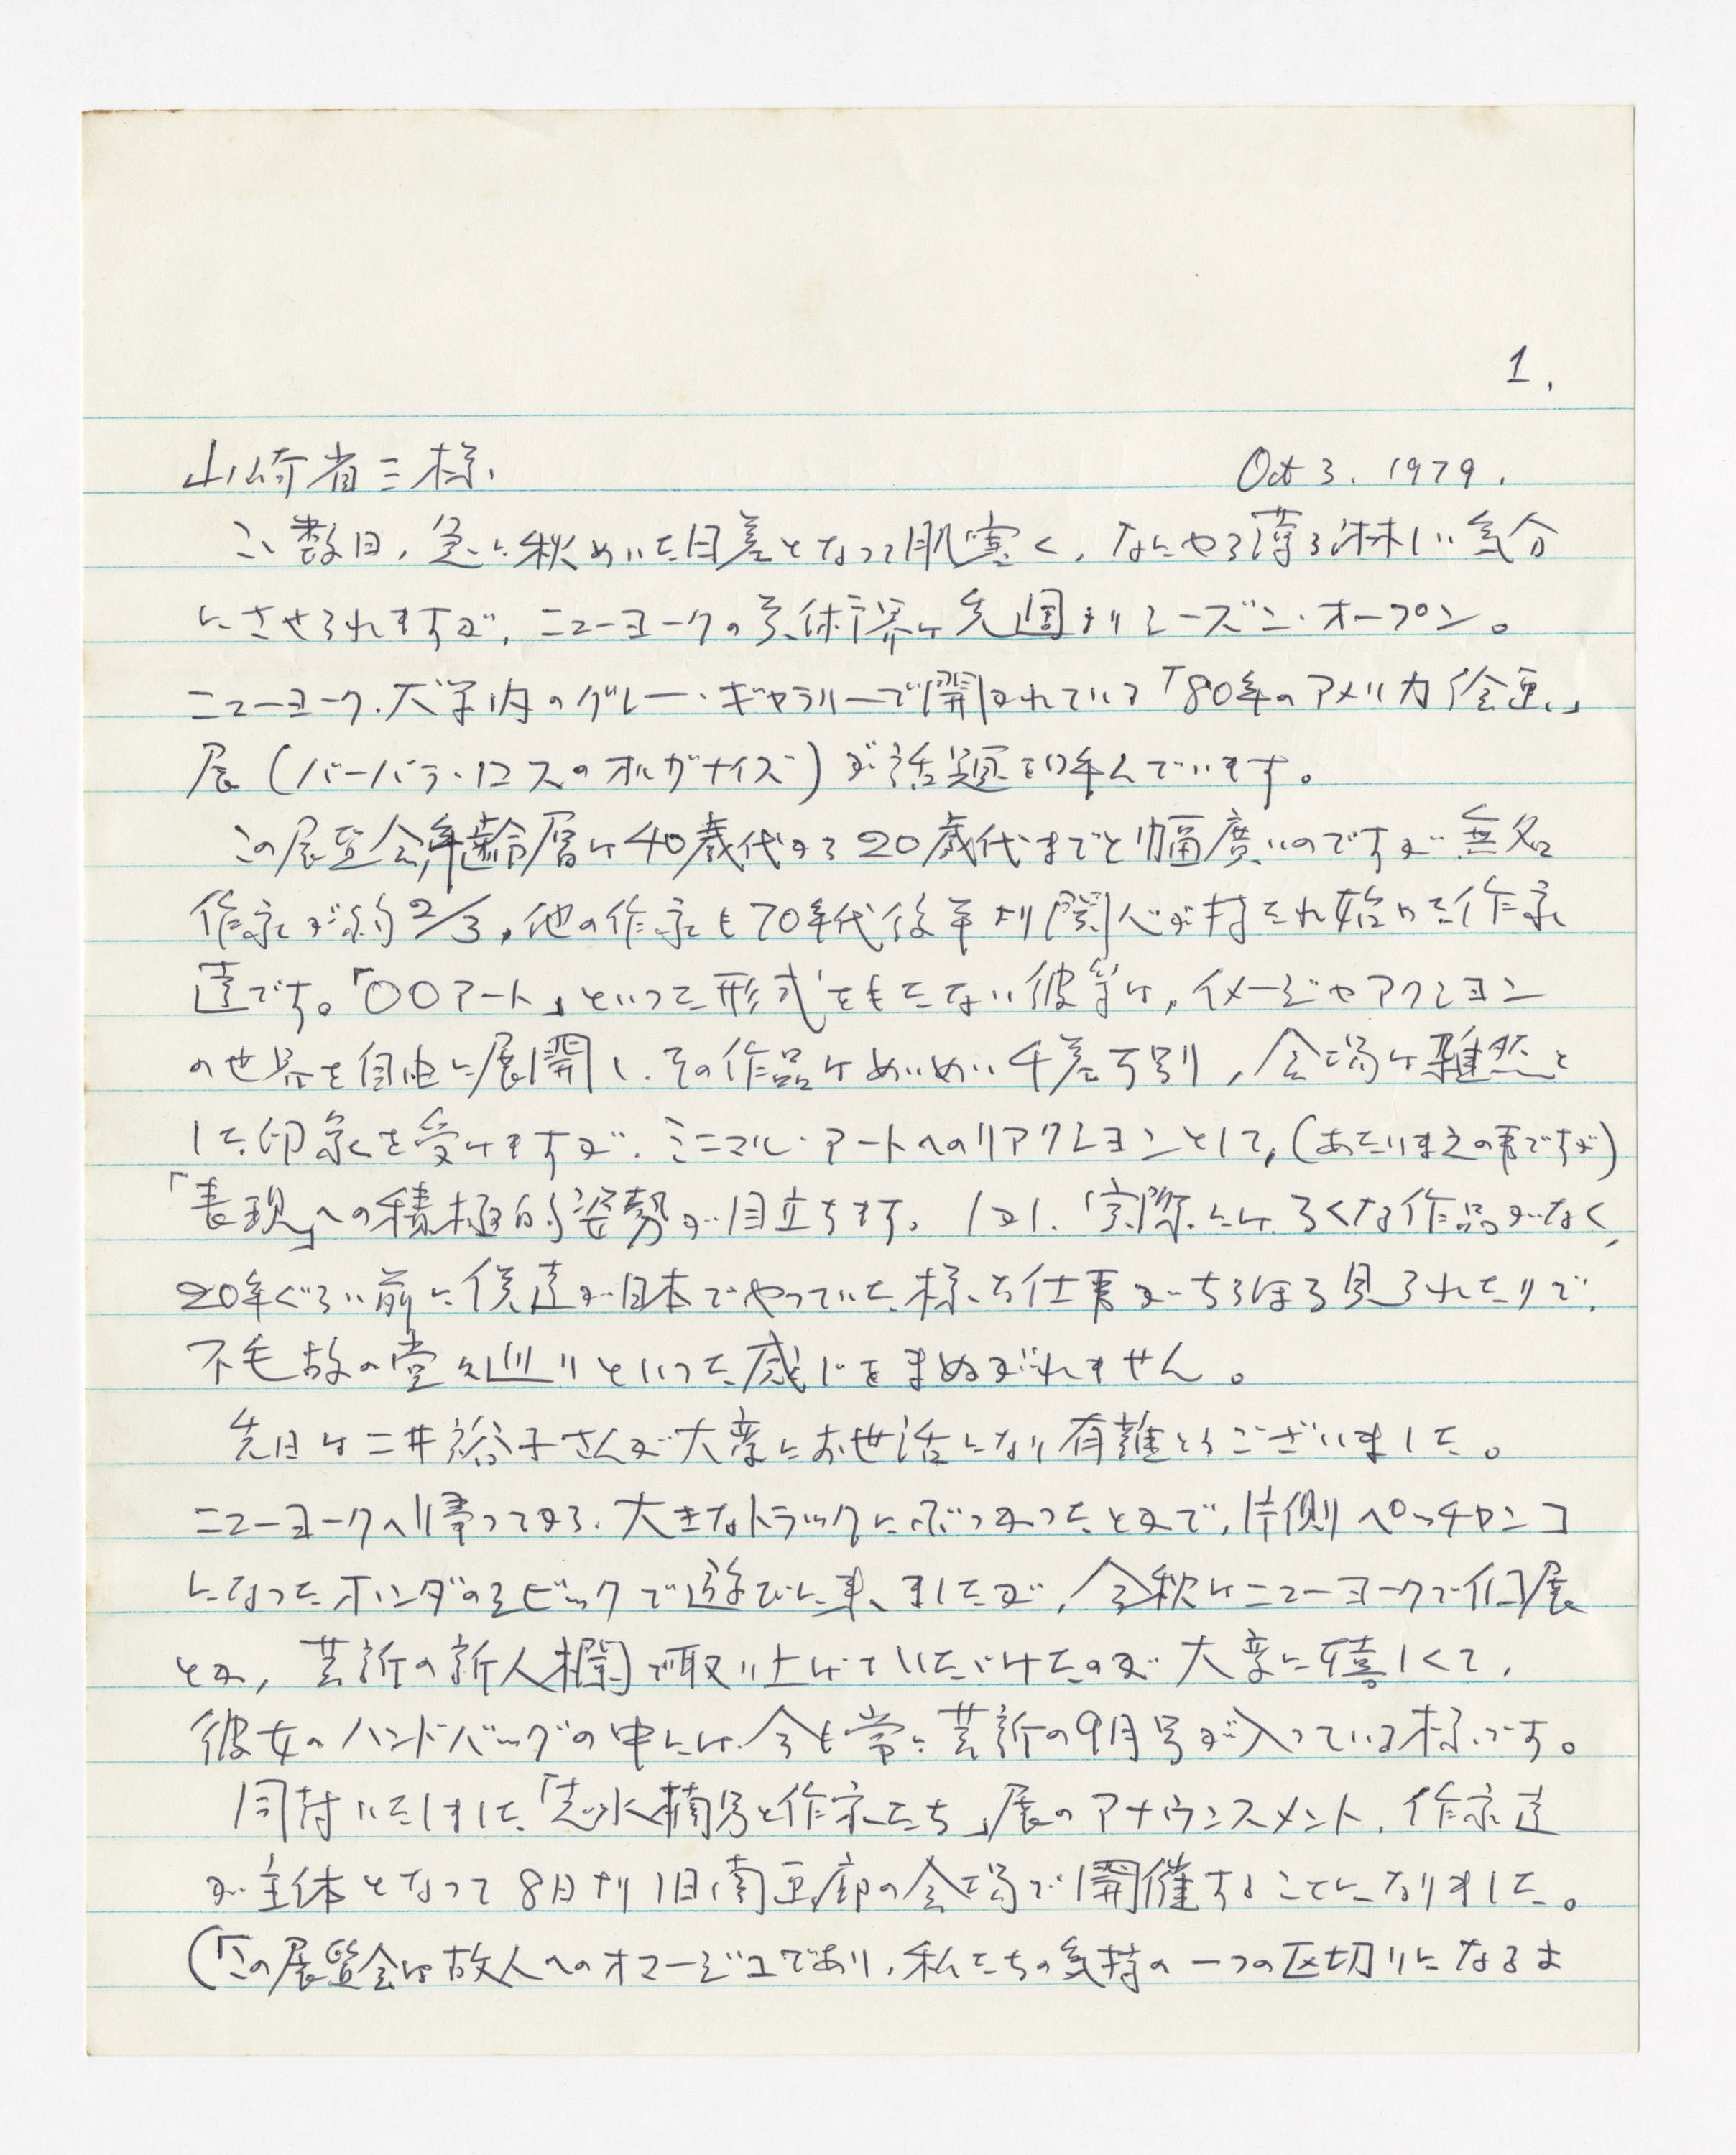 1.
山崎省三様、 Oct 3. 1979.
ここ数日、急に秋めいた日差となって肌寒く、なにやら薄ら淋しい気分
にさせられますが、ニューヨークの美術界は先週よりシーズン・オープン。
ニューヨーク・大学内のグレー・ギャラリーで開かれている「80年のアメリカ絵画」
展（バーバラ・ロスのオルガナイズ）が話題を呼んでいます。
この展覧会、年齢層は40歳代から20歳代までと幅広いのですが 無名
作家が約2/3，他の作家も70年代後半より関心が持たれ始めた作家
達です。「〇〇アート」といった形式をもたない彼等は，イメージやアクション
の世界を自由に展開し、その作品はめいめい千差万別，会場は雑然と
した印象を受けますが、ミニマル・アートへのリアクションとして，（あたりまえの事ですが）
「表現」への積極的姿勢が目立ちます。しかし、実際には、ろくな作品がなく、
20年ぐらい前に僕達が日本でやっていた様な仕事がちらほら見られたりで、
不毛故の堂々巡りといった感じをまぬがれません。
先日は二井裕子さんが大変にお世話になり有難とうございました。
ニューヨークへ帰ってから、大きなトラックにぶつかったとかで，片側ペッチャンコ
になったホンダのシビックで遊びに来ましたが，今秋はニューヨークで個展
とか，芸新の新人欄で取り上げていただけたのが大変に嬉しくて，
彼女のハンドバッグの中には今も常に芸新の9月号が入っている様です。
同封いたしました「志水楠男と作家たち」展のアナウンスメント、作家達
が主体となって8日より旧南画廊の会場で開催することになりました。
（「この展覧会は故人へのオマージュであり、私たちの気持の一つの区切りになるよ